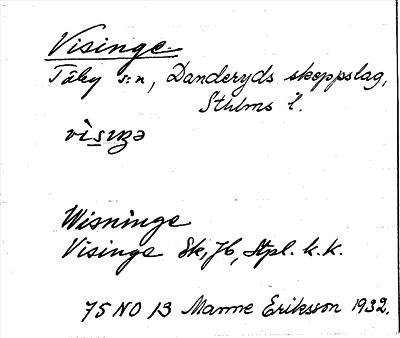 Visinge
Täby s:n, Danderyds skeppslag,
Sthlms l.
Wisninge
Visinge Sk, Jb, Stpl. k.k.
75 NO 13 Manne Eriksson 1932.